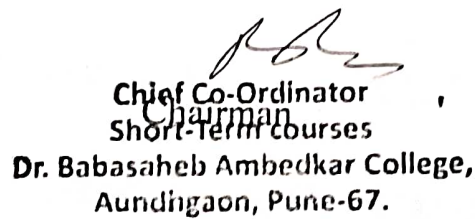 Chief Co-Ordinator
Chairman
Short-Term courses
Dr. Babasaheb Ambedkar College,
Aundhgaon, Pune-67.